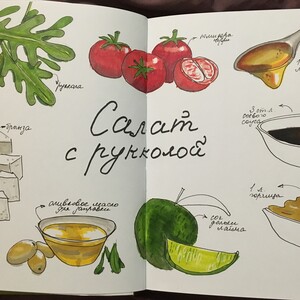 руккола
помидоры
черри
брынза
Салат
с рукколой
3 ст л
соевого
соуса
оливковое масло
для заправки
сок
дольки
лайма
1 л
горчицы